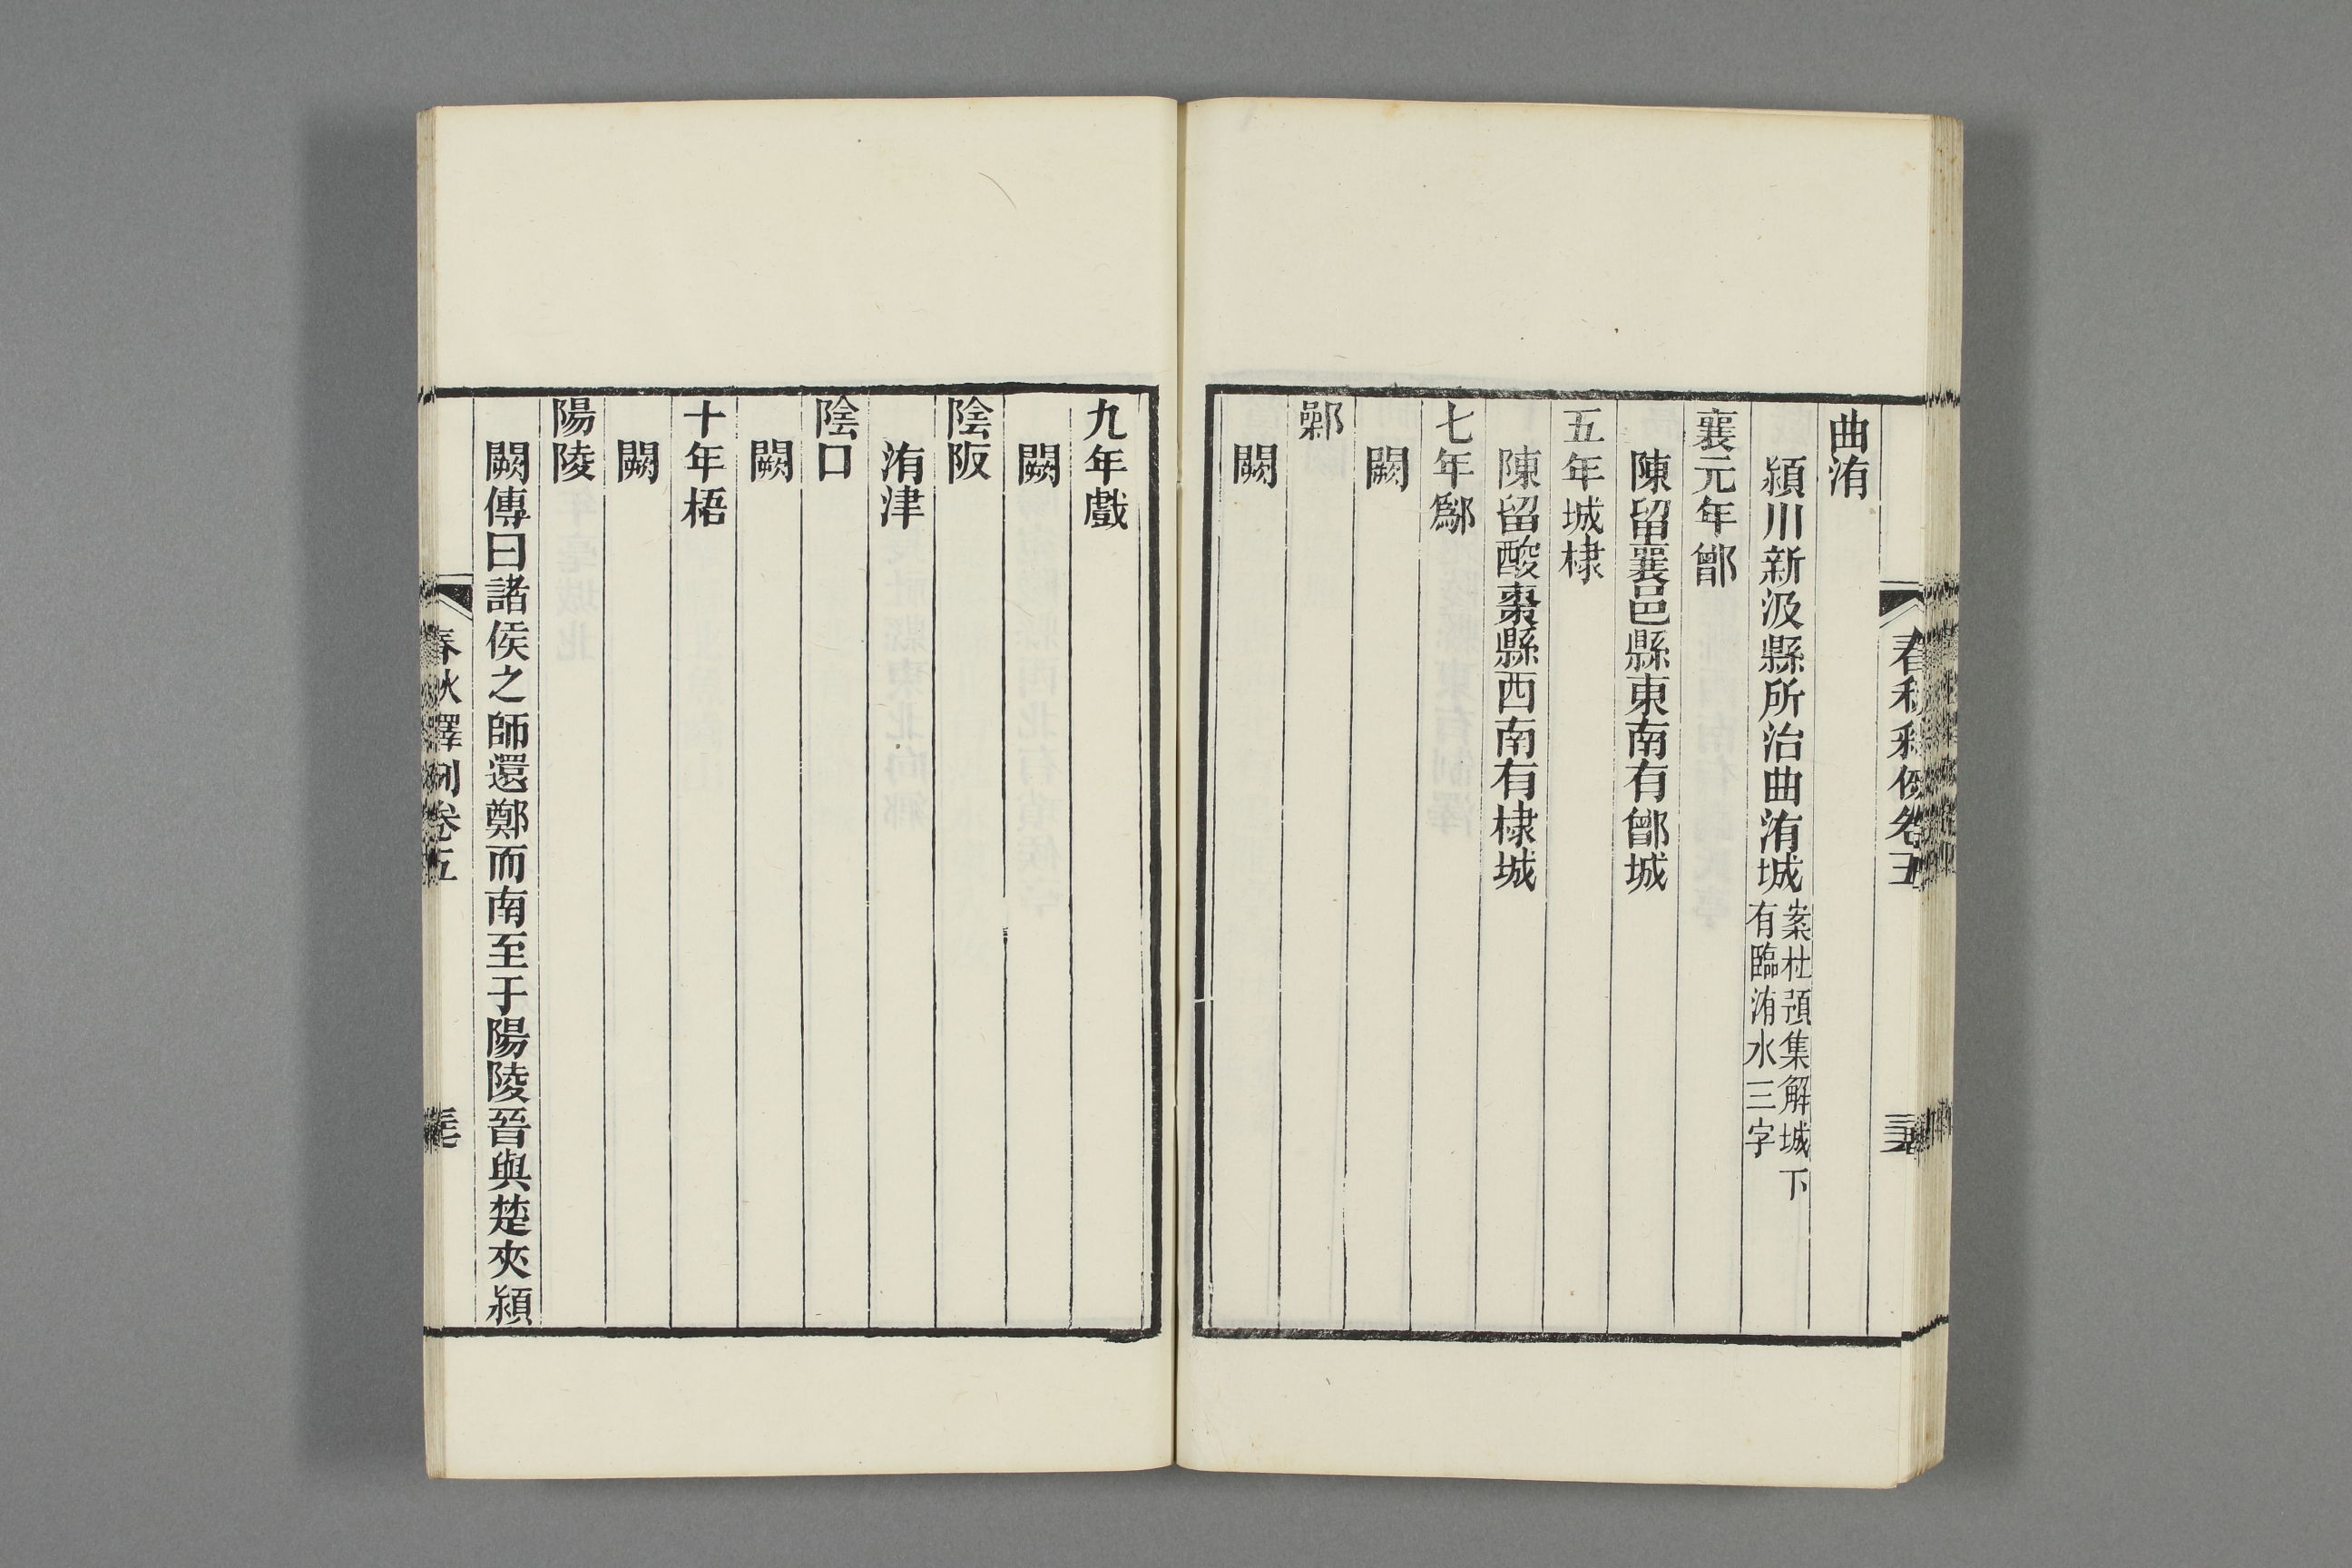 曲洧
潁川新汲縣所治曲洧城案杜預集解城下有臨洧水三字
襄元年鄫
陳留襄邑縣東南有鄫城
五年城棣
陳留酸棗縣西南有棣城
七年鄬
闕
鄵
闕
九年戲
闕
陰阪
洧津
陰口
闕
十年梧
闕
陽陵
闕傳曰諸侯之師還鄭而南至于陽陵晉與楚夾潁
春秋釋例卷五